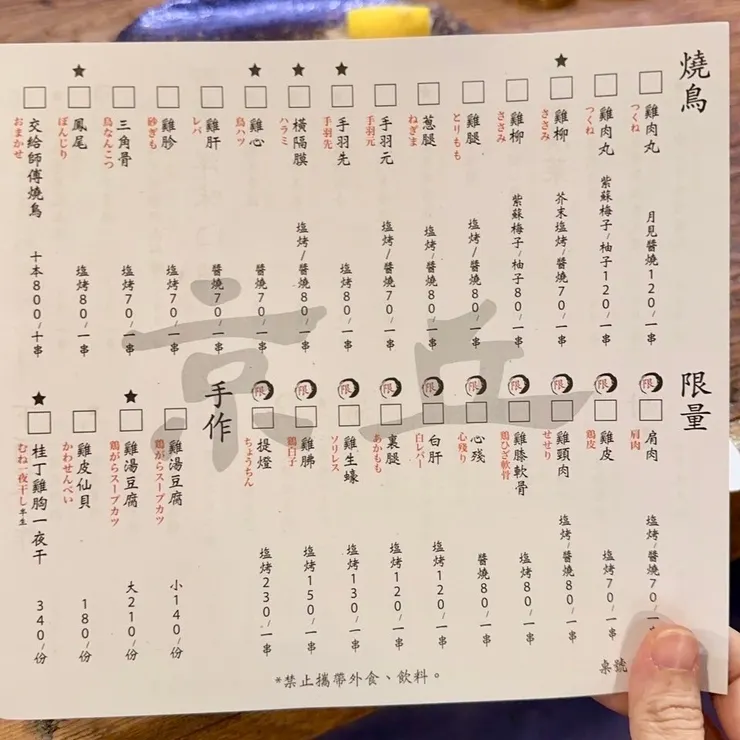 燒鳥
雞肉丸 月見醬燒120/一串
つくね
雞肉丸 紫蘇梅子/柚子120/一串
つくね
★
雞柳 芥末塩烤/醬燒70/一串
ささみ
雞柳 紫蘇梅子/柚子80/一串
ささみ
雞腿 塩烤/醬燒80/一串
とりもも
蔥腿 塩烤/醬燒80/一串
ねぎま
手羽元 塩烤/醬燒70/一串
手羽元
★
手羽先 塩烤80/一串
手羽先
★
橫隔膜 塩烤/醬燒80/一串
ハラミ
★
雞心 醬燒70/一串
鳥ハツ
雞肝 醬燒70/一串
レバ
雞胗 塩烤70/一串
砂ぎも
三角骨 塩烤70/一串
鳥なんこつ
★
鳳尾 塩烤80/一串
ぼんじり
交給師傅燒鳥 十本800/十串
おまかせ
京丘
限量
限 肩肉 塩烤/醬燒70/一串
肩肉
限 雞皮 塩烤70/一串
鶏皮
限 雞頸肉 塩烤/醬燒80/一串
せせり
限 雞膝軟骨 塩烤80/一串
鶏ひざ軟骨
限 心殘 醬燒80/一串
心残り
限 白肝 塩烤120/一串
白レバー
限 裏腿 塩烤120/一串
あかもも
限 雞生蠔 塩烤130/一串
ソリレス
限 雞胇 塩烤150/一串
鶏白子
限 提燈 塩烤230/一串
ちょうちん
手作
雞湯豆腐 小140/份
鶏がらスープカツ
★
雞湯豆腐 大210/份
鶏がらスープカツ
雞皮仙貝 180/份
かわせんべい
★
桂丁雞胸一夜干 340/份
むね一夜干し半生
桌號
*禁止攜帶外食、飲料。